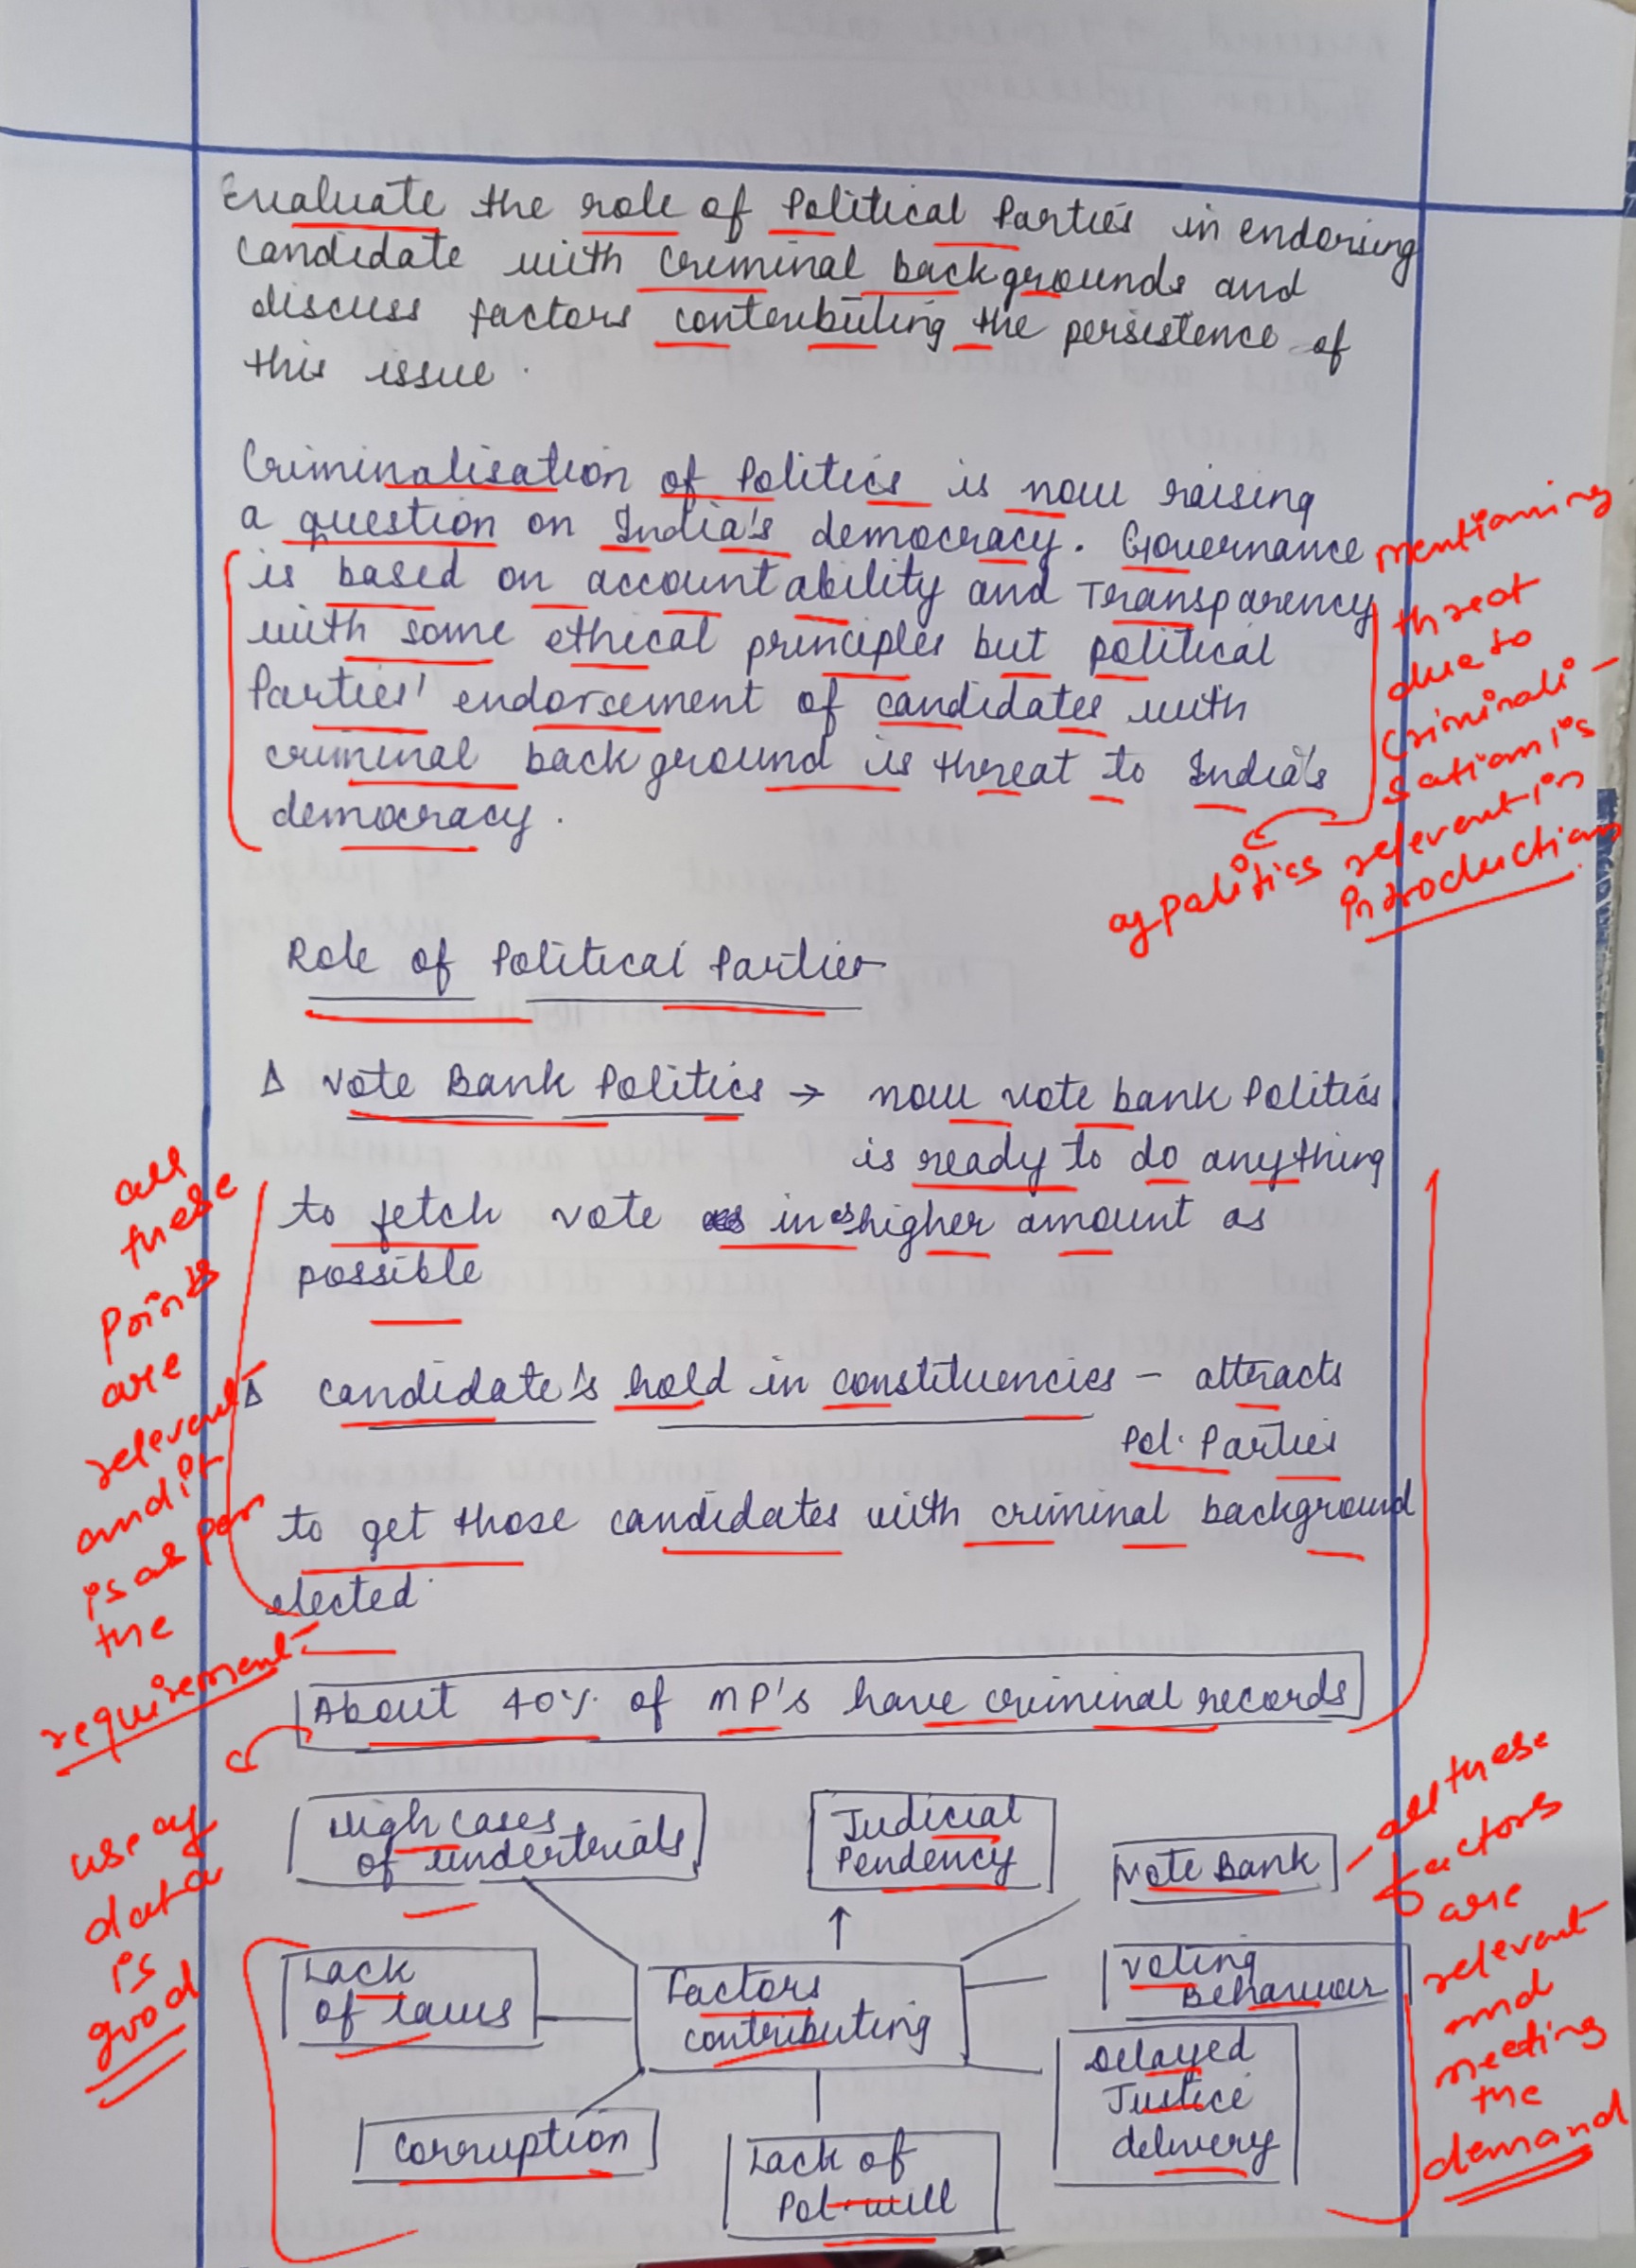 Evaluate the role of Political Parties in endorsing
candidate with criminal backgrounds and
discuss factors contributing the persistence of
this issue.
Criminalisation of Politics is now raising
a question on India's democracy. Governance
is based on accountability and Transparency
with some ethical principles but political
Parties' endorsement of candidates with
criminal background is threat to India's
democracy.
mentioning
threat
due to
criminali-
sation is
of politics relevent in
introduction
Role of Political Parties
Δ Vote Bank Politics → now vote bank Politics
is ready to do anything
to fetch vote in as higher amount as
possible
Δ candidate's hold in constituencies - attracts
Pol. Parties
to get those candidates with criminal background
elected.
all
these
points
are
relevent
and it
is as per
the
requirement
About 40% of MP's have criminal records
use of
data
is
good
High cases
of undertrials
Judicial
Pendency
Vote Bank
Lack
of laws
Factors
contributing
Voting
Behaviour
Delayed
Justice
delivery
Corruption
Lack of
Pol. will
all these
factors
are
relevant
and
meeting
the
demand